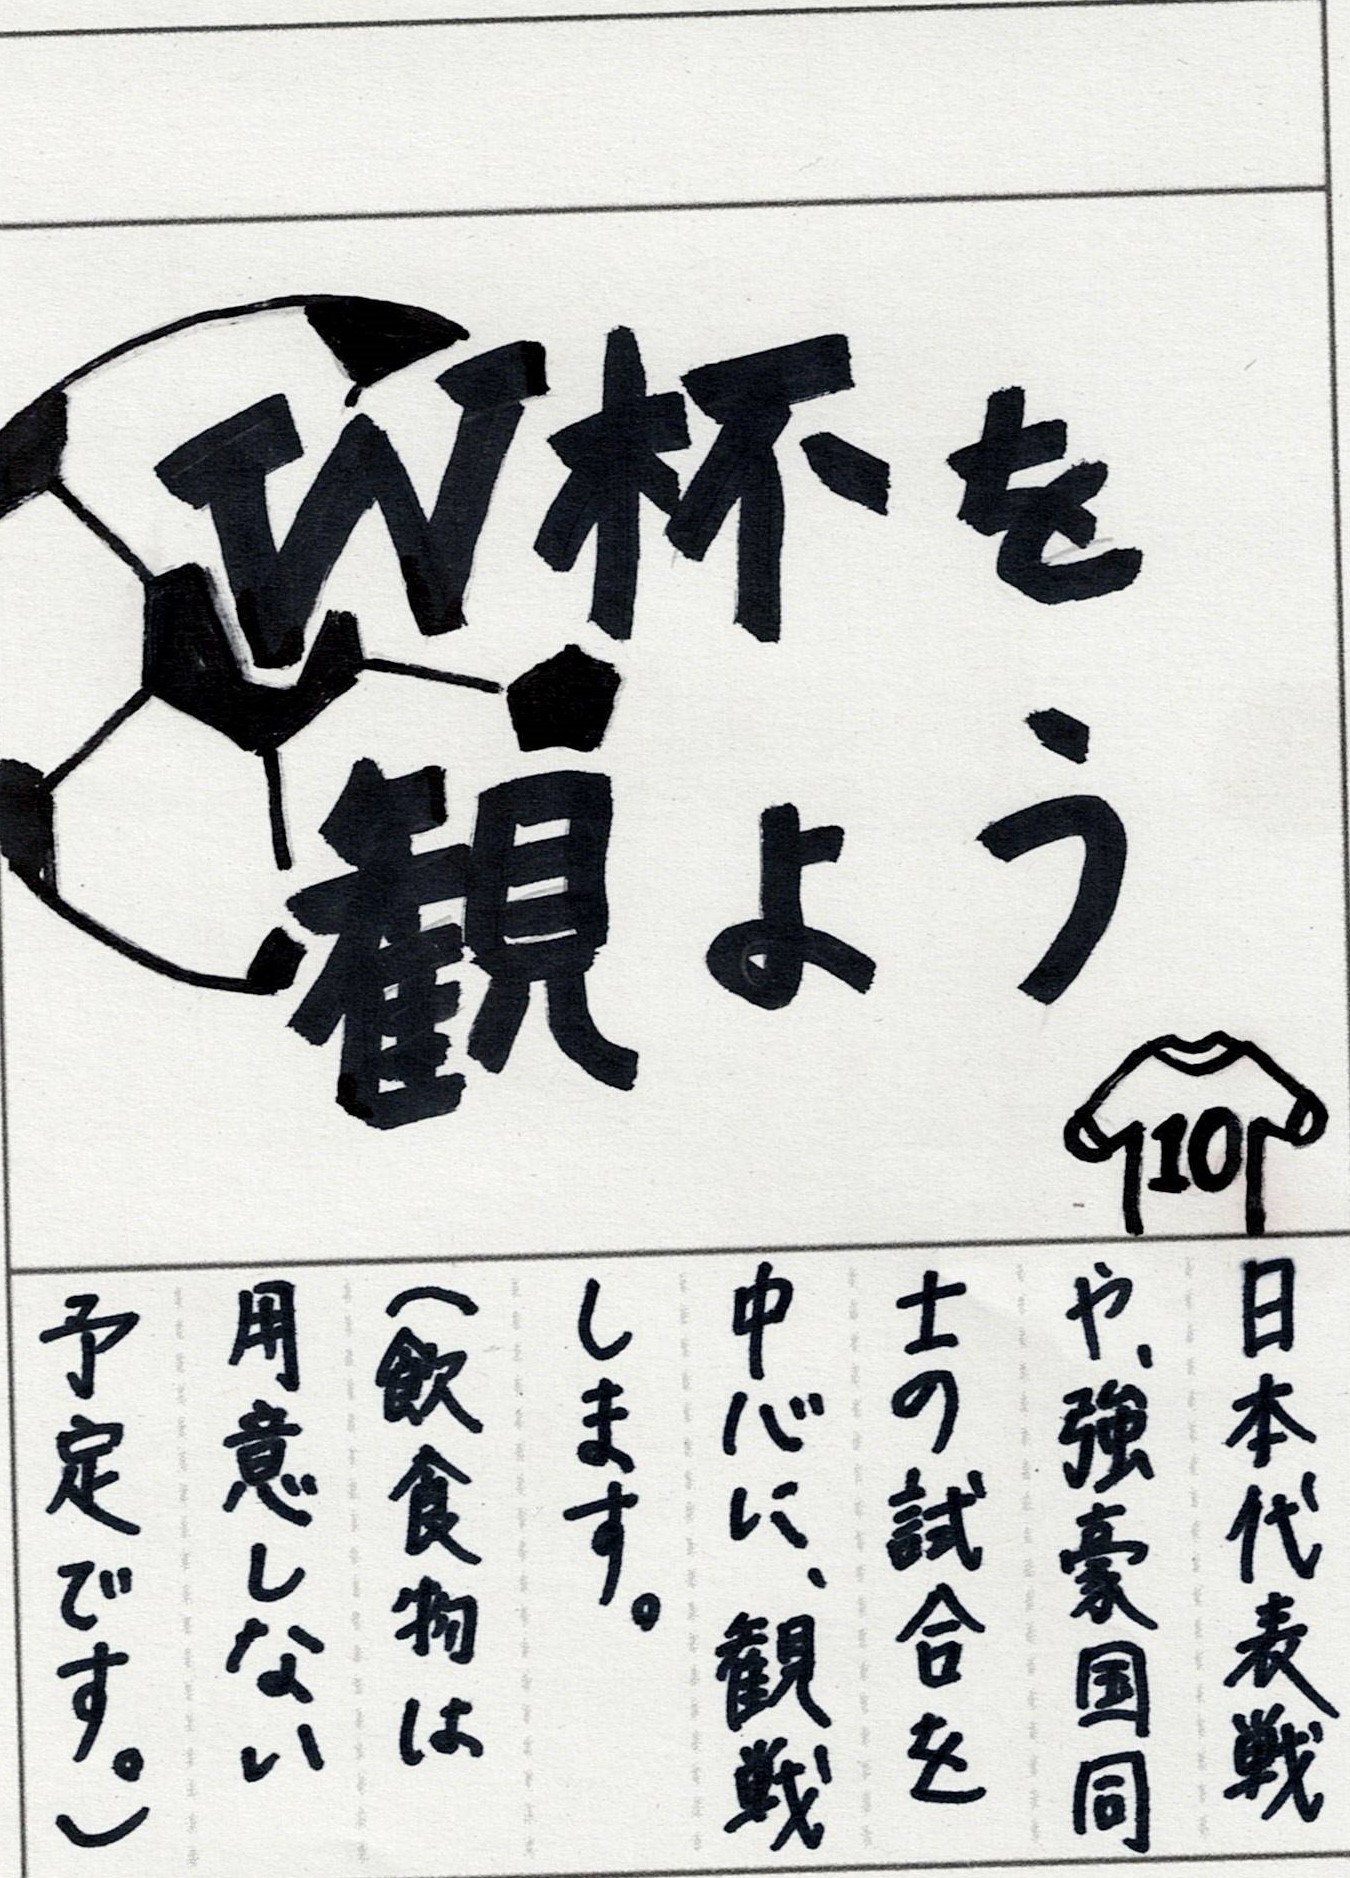 W杯を
観よう
10
日本代表戦
や、強豪国同
士の試合を
中心に、観戦
します。
(飲食物は
用意しない
予定です。)